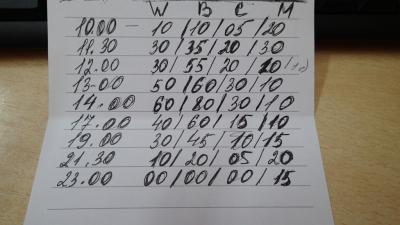 W B C M
10.00 — 10 / 10 / 05 / 20
11.30 30 / 35 / 20 / 30
12.00 30 / 55 / 20 / 20
13-00 50 / 60 / 30 / 10
14.00 60 / 80 / 30 / 10
17.00 40 / 60 / 15 / 10
19.00 30 / 45 / 10 / 15
21.30 10 / 20 / 05 / 20
23.00 00 / 00 / 00 / 15